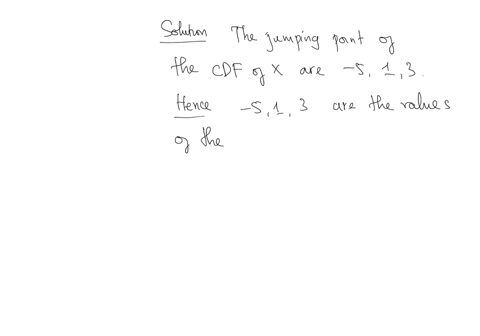 Solution The jumping point of
the CDF of X are -5, 1, 3.
Hence -5, 1, 3 are the values
of the